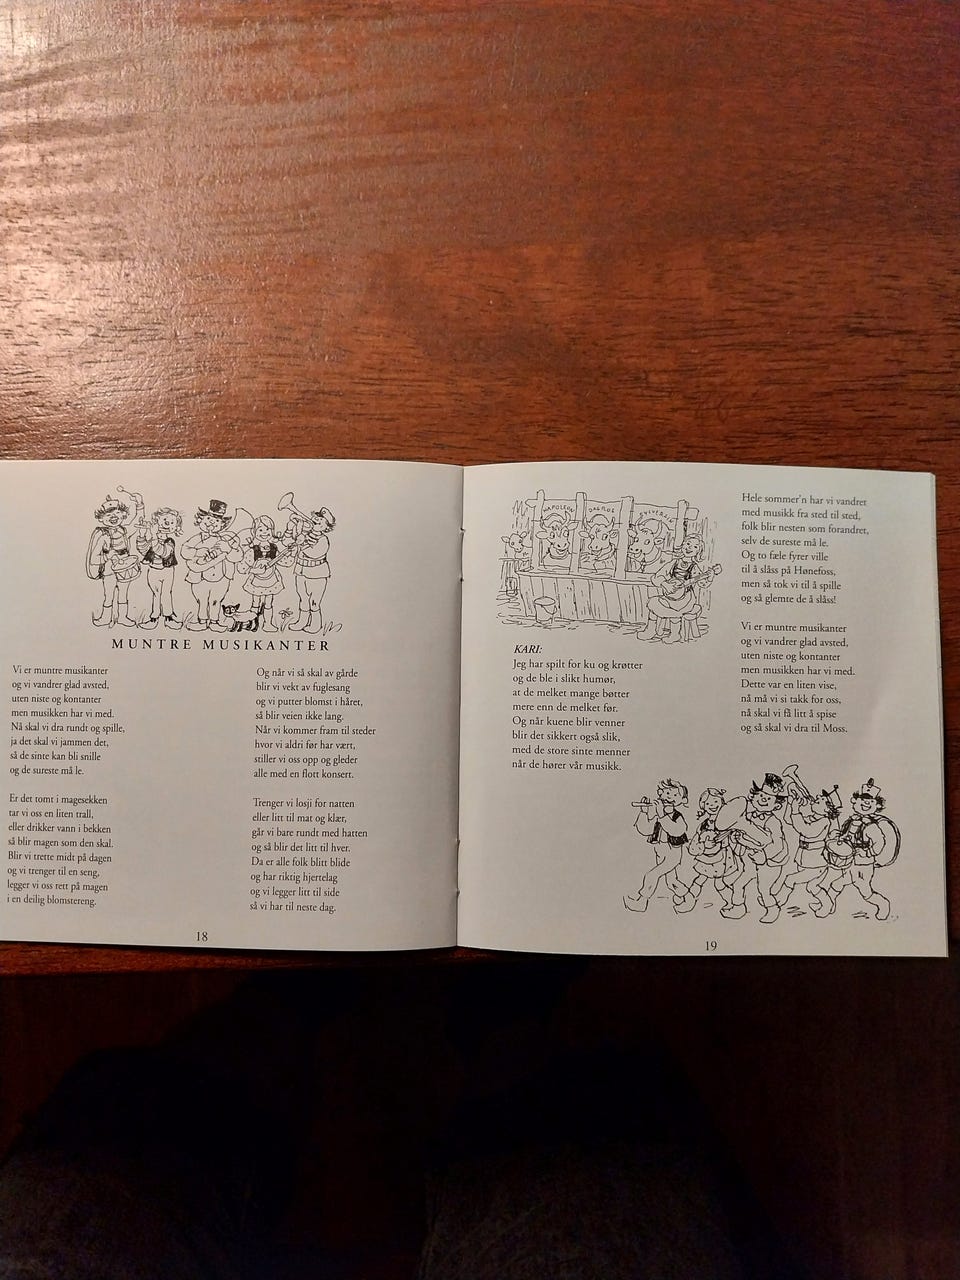 MUNTRE MUSIKANTER
Vi er muntre musikanter
og vi vandrer glad avsted,
uten niste og kontanter
men musikken har vi med.
Nå skal vi dra rundt og spille,
ja det skal vi jammen det,
så de sinte kan bli snille
og de sureste må le.
Er det tomt i magesekken
tar vi oss en liten trall,
eller drikker vann i bekken
så blir magen som den skal.
Blir vi trette midt på dagen
og vi trenger til en seng,
legger vi oss rett på magen
i en deilig blomstereng.
Og når vi så skal av gårde
blir vi vekt av fuglesang
og vi putter blomst i håret,
så blir veien ikke lang.
Når vi kommer fram til steder
hvor vi aldri før har vært,
stiller vi oss opp og gleder
alle med en flott konsert.
Trenger vi losji for natten
eller litt til mat og klær,
går vi bare rundt med hatten
og så blir det litt til hver.
Da er alle folk blitt blide
og har riktig hjertelag
og vi legger litt til side
så vi har til neste dag.
18
NAPOLEON
DAGROS
KARI:
Jeg har spilt for ku og krøtter
og de ble i slikt humør,
at de melket mange bøtter
mere enn de melket før.
Og når kuene blir venner
blir det sikkert også slik,
med de store sinte menner
når de hører vår musikk.
Hele sommer'n har vi vandret
med musikk fra sted til sted,
folk blir nesten som forandret,
selv de sureste må le.
Og to fæle fyrer ville
til å slåss på Hønefoss,
men så tok vi til å spille
og så glemte de å slåss!
Vi er muntre musikanter
og vi vandrer glad avsted,
uten niste og kontanter
men musikken har vi med.
Dette var en liten vise,
nå må vi si takk for oss,
nå skal vi få litt å spise
og så skal vi dra til Moss.
19